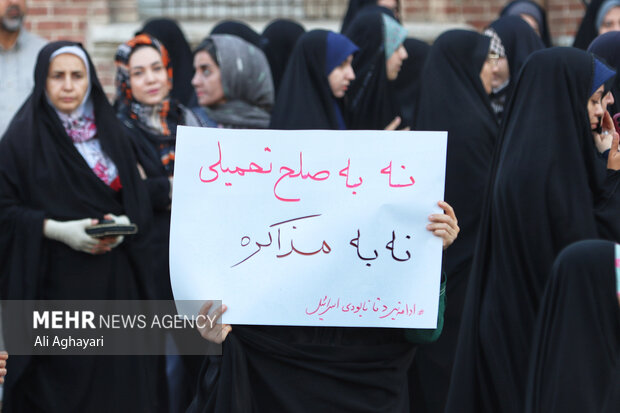 نه به صلح تحمیلی
نه به مذاکره
#ادامه نبرد تا نابودی اسرائیل
MEHR NEWS AGENCY
Ali Aghayari